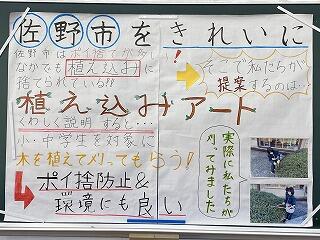 佐野市をきれいに
佐野市はポイ捨てが多い
なかでも植え込みに
捨てられている!!
そこで私たちが
提案するのは…
植え込みアート
くわしく説明すると…
小・中学生を対象に
木を植えて刈ってもらう!
ポイ捨防止&
環境にも良い
実際に私たちが
刈ってみました